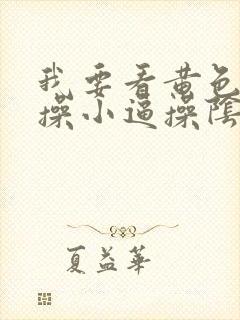 我要看黄色
操小逼操陰
夏益華